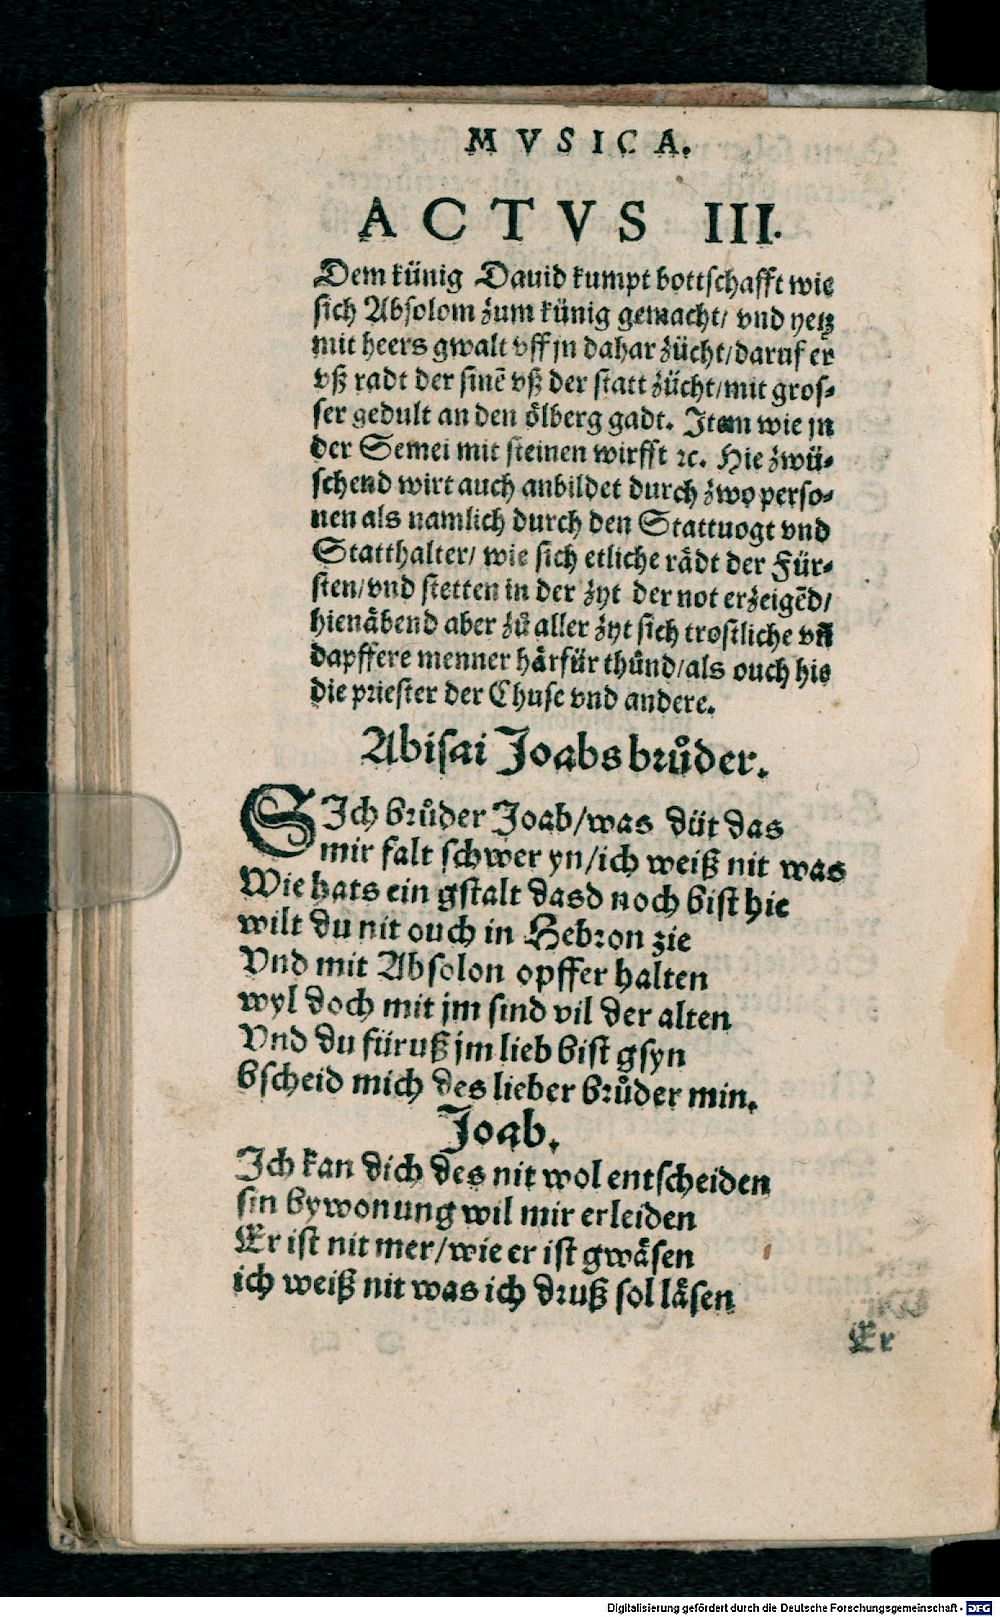 MVSICA.
ACTVS III.
Dem künig Dauid kumpt bottschafft wie
sich Absolom zum künig gemacht/ vnd yetz
mit heers gwalt vff jn dahar zücht/daruf er
vß radt der sinẽ vß der statt zücht/mit gros⸗
ser gedult an den ölberg gadt. Item wie jn
der Semei mit steinen wirfft ꝛc. Hie zwü⸗
schend wirt auch anbildet durch zwo perso⸗
nen als namlich durch den Stattuogt vnd
Statthalter/ wie sich etliche rädt der Für⸗
sten/vnd stetten in der zyt der not erzeigẽd/
hienäbend aber zů aller zyt sich trostliche vñ
dapffere menner härfür thůnd/als ouch hie
die priester der Chuse vnd andere.
Abisai Joabs brůder.
SIch brůder Joab/was düt das
mir falt schwer yn/ich weiß nit was
Wie hats ein gstalt dasd noch bist hie
wilt du nit ouch in Hebron zie
Vnd mit Absolon opffer halten
wyl doch mit jm sind vil der alten
Vnd du füruß jm lieb bist gsyn
bscheid mich des lieber brůder min.
Joab.
Ich kan dich des nit wol entscheiden
sin bywonung wil mir erleiden
Er ist nit mer/wie er ist gwäsen
ich weiß nit was ich druß sol läsen
Er
Digitalisierung gefördert durch die Deutsche Forschungsgemeinschaft - DFG